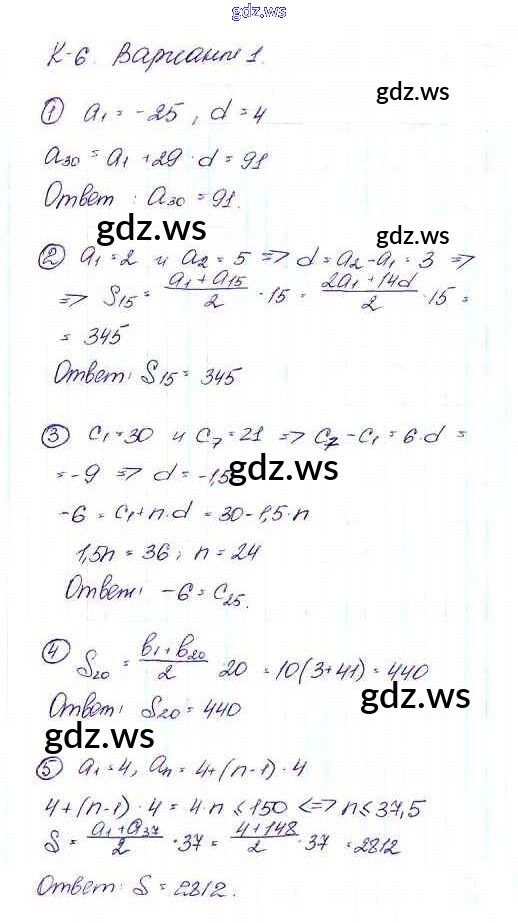 gdz.ws
К-6. Вариант 1.
gdz.ws
① a₁ = -25, d = 4
a₃₀ = a₁ + 29 · d = 91
Ответ: a₃₀ = 91.
gdz.ws
gdz.ws
② a₁ = 2 и a₂ = 5 => d = a₂ - a₁ = 3 =>
=> S₁₅ = (a₁ + a₁₅)/2 · 15 = (2a₁ + 14d)/2 · 15 =
= 345
Ответ: S₁₅ = 345
③ c₁ = 30 и c₇ = 21 => c₇ - c₁ = 6 · d =
= -9 => d = -1,5
gdz.ws
-6 = c₁ + n · d = 30 - 1,5 · n
1,5n = 36; n = 24
Ответ: -6 = c₂₅.
④ S₂₀ = (b₁ + b₂₀)/2 · 20 = 10(3 + 41) = 440
gdz.ws
Ответ: S₂₀ = 440
gdz.ws
⑤ a₁ = 4, aₙ = 4 + (n-1) · 4
4 + (n-1) · 4 = 4 · n ≤ 150 <=> n ≤ 37,5
S = (a₁ + a₃₇)/2 · 37 = (4 + 148)/2 · 37 = 2812
Ответ: S = 2812.